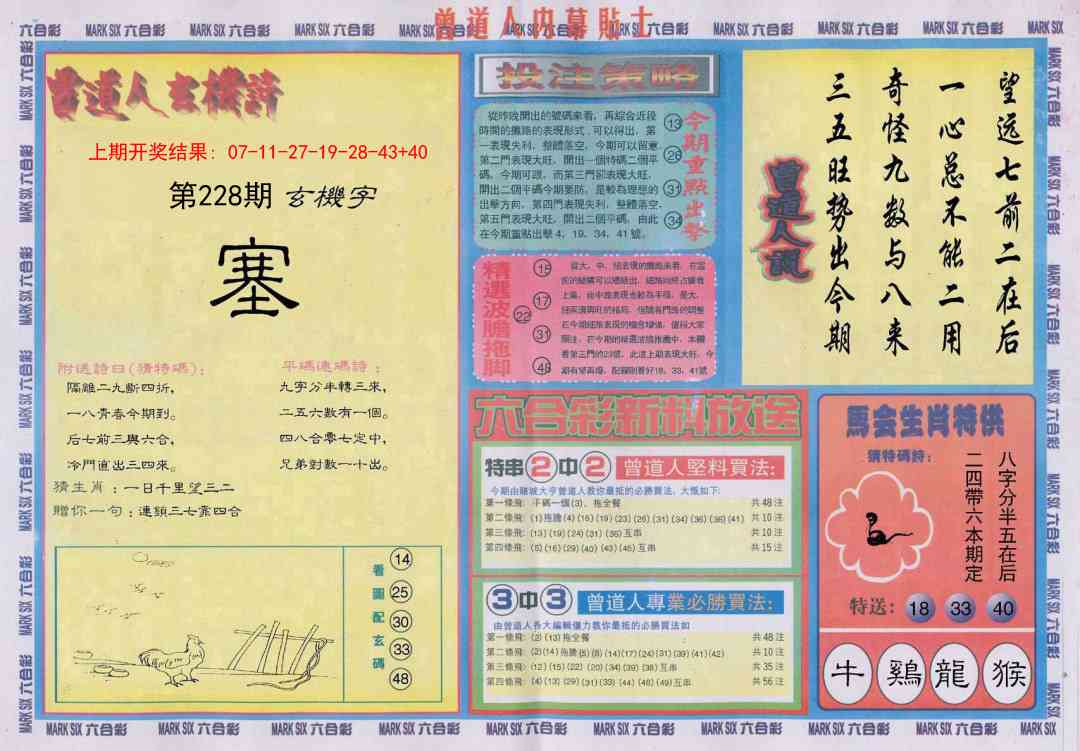 曾道人内幕貼士
曾道人玄機詩
上期开奖结果: 07-11-27-19-28-43+40
第228期 玄機字
塞
附送詩曰(猜特碼):
隔離二九斷四折,
一八青春今期到。
后七前三與六合,
冷門直出三四來。
平碼連碼詩:
九字分半轉三來,
二五六數有一個。
四八合零七定中,
兄弟對數一十出。
猜生肖:一日千里望三二
贈你一句:連鎖三七靠四合
看圖配玄碼
14
25
30
33
48
投注策略
從昨晚開出的號碼來看,再綜合近段
時間的攤路的表現形式,可以得出,第
一表現失利,整體落空,今期可以留意.
第二門表現大旺,開出一個特碼二個平
碼。今期可跟,而第三門卻表現大旺,
開出二個平碼今期要防,是較為理想的
出擊方向,第四門表現失利,整體落空,
第五門表現大旺,開出二個平碼,由此
在今期重點出擊4、19、34、41號。
今期重點出擊
13
26
31
34
精選波膽拖脚
15
17
22
31
48
曾道人說
望远七前二在后
一心总不能二用
奇怪九数与八来
三五旺势出今期
六合彩新料放送
特串2中2 曾道人堅料買法:
今期由賭城大亨曾道人教你最抵的必勝買法,大慨如下:
第一條飛: 平碼一個(3)、拖全餐 共48注
第二條飛: (1)拖膽(4)(16)(19)(23)(26)(31)(34)(36)(38)(41) 共10注
第三條飛: (13)(19)(24)(31)(35)互串 共10注
第四條飛: (5)(16)(29)(40)(43)(45)互串 共15注
3中3 曾道人專業必勝買法:
由曾道人各大編輯傾力教你最抵的必勝買法如
第一條飛: (2)(13)拖全餐 共48注
第二條飛: (2)(14)拖膽(5)(8)(14)(17)(24)(31)(39)(41)(42) 共10注
第三條飛: (12)(15)(22)(20)(34)(39)(38)互串 共35注
第四條飛: (4)(13)(29)(31)(33)(44)(48)(49)互串 共56注
馬会生肖特供
猜特碼詩:
八字分半五在后
二四帶六本期定
特送: 18 33 40
牛 鷄 龍 猴
MARK SIX 六合彩